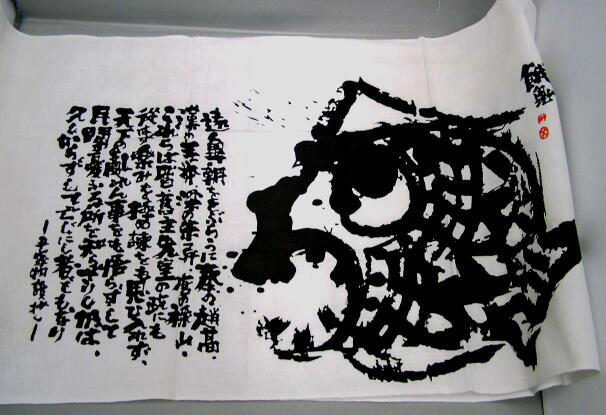 遠く異朝をとぶらへば秦の趙高、
漢の王莽、梁の朱异、唐の禄山、
これらは皆舊主先皇の政にも
従はず楽みを極め諫をも思ひ入れず、
天下の乱れん事をも悟らずして
民間の憂ふる所を知らざりしかば、
久しからずして亡じにし者どもなり
ー平家物語よりー